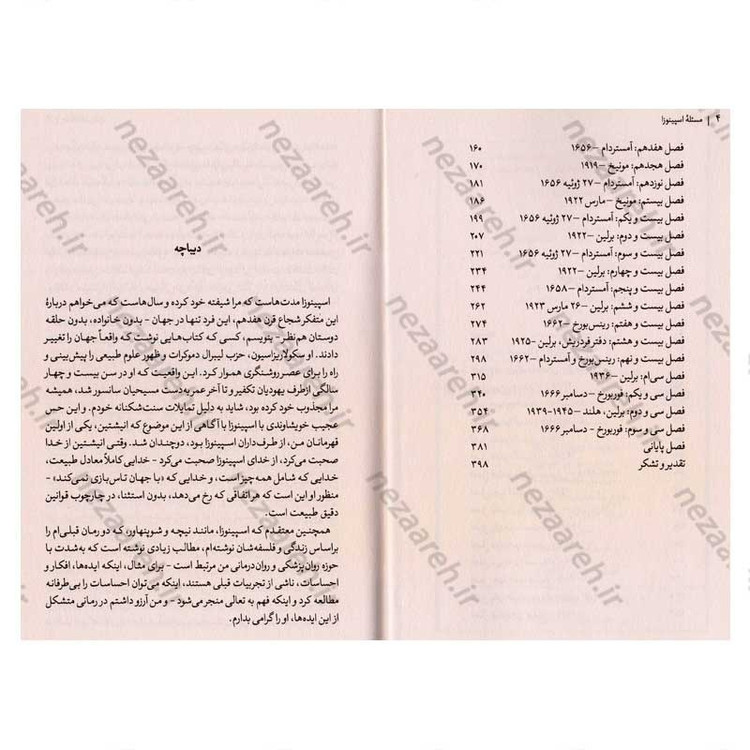 ۴ | مسئلهٔ اسپینوزا
فصل هفدهم: آمستردام –۱۶۵۶ ۱۶۰
فصل هجدهم: مونیخ – ۱۹۱۹ ۱۷۰
فصل نوزدهم: آمستردام – ۲۷ ژوئیه ۱۶۵۶ ۱۸۱
فصل بیستم: مونیخ – مارس ۱۹۲۲ ۱۸۶
فصل بیست و یکم: آمستردام – ۲۷ ژوئیه ۱۶۵۶ ۱۹۹
فصل بیست و دوم: برلین –۱۹۲۲ ۲۰۷
فصل بیست و سوم: آمستردام – ۲۷ ژوئیه ۱۶۵۶ ۲۲۱
فصل بیست و چهارم: برلین –۱۹۲۲ ۲۳۴
فصل بیست و پنجم: آمستردام – ۱۶۵۸ ۲۴۴
فصل بیست و ششم: برلین – ۲۶ مارس ۱۹۲۳ ۲۶۲
فصل بیست و هفتم: رینس‌بورخ –۱۶۶۲ ۲۷۴
فصل بیست و هشتم: دفتر فردریش، برلین –۱۹۲۵ ۲۸۳
فصل بیست و نهم: رینس‌بورخ و آمستردام –۱۶۶۲ ۲۹۸
فصل سی‌ام: برلین –۱۹۳۶ ۳۱۵
فصل سی و یکم: فوربورخ – دسامبر ۱۶۶۶ ۳۴۰
فصل سی و دوم: برلین، هلند – ۱۹۴۵–۱۹۳۹ ۳۵۴
فصل سی و سوم: فوربورخ – دسامبر ۱۶۶۶ ۳۶۸
فصل پایانی ۳۸۱
تقدیر و تشکر ۳۹۸
دیباچه
اسپینوزا مدت‌هاست که مرا شیفته خود کرده و سال‌هاست که می‌خواهم دربارهٔ
این متفکر شجاع قرن هفدهم، این فرد تنها در جهان – بدون خانواده، بدون حلقه
دوستان هم‌نظر – بنویسم، کسی که کتاب‌هایی نوشت که واقعاً جهان را تغییر
دادند. او سکولاریزاسیون، حزب لیبرال دموکرات و ظهور علوم طبیعی را پیش‌بینی و
راه را برای عصر روشنگری هموار کرد. این واقعیت که او در سن بیست و چهار
سالگی ازطرف یهودیان تکفیر و تا آخر عمر به‌دست مسیحیان سانسور شد، همیشه
مرا مجذوب خود کرده بود، شاید به دلیل تمایلات سنت‌شکنانه خودم. و این حس
عجیب خویشاوندی با اسپینوزا با آگاهی از این موضوع که انیشتین، یکی از اولین
قهرمانان من، از طرف‌داران اسپینوزا بود، دوچندان شد. وقتی انیشتین از خدا
صحبت می‌کرد، از خدای اسپینوزا صحبت می‌کرد – خدایی کاملاً معادل طبیعت،
خدایی که شامل همه چیز است، و خدایی که «با جهان تاس‌بازی نمی‌کند» –
منظور او این است که هر اتفاقی که رخ می‌دهد، بدون استثنا، در چارچوب قوانین
دقیق طبیعت است.
همچنین معتقدم که اسپینوزا، مانند نیچه و شوپنهاور، که دو رمان قبلی‌ام را
براساس زندگی و فلسفه‌شان نوشته‌ام، مطالب زیادی نوشته است که به‌شدت با
حوزه روان‌پزشکی و روان‌درمانی من مرتبط است – برای مثال، اینکه ایده‌ها، افکار و
احساسات، ناشی از تجربیات قبلی هستند، اینکه می‌توان احساسات را بی‌طرفانه
مطالعه کرد و اینکه فهم به تعالی منجر می‌شود – و من آرزو داشتم در رمانی متشکل
از این ایده‌ها، او را گرامی بدارم.
nezaareh.ir
nezaareh.ir
nezaareh.ir
nezaareh.ir
nezaareh.ir
nezaareh.ir
nezaareh.ir
nezaareh.ir